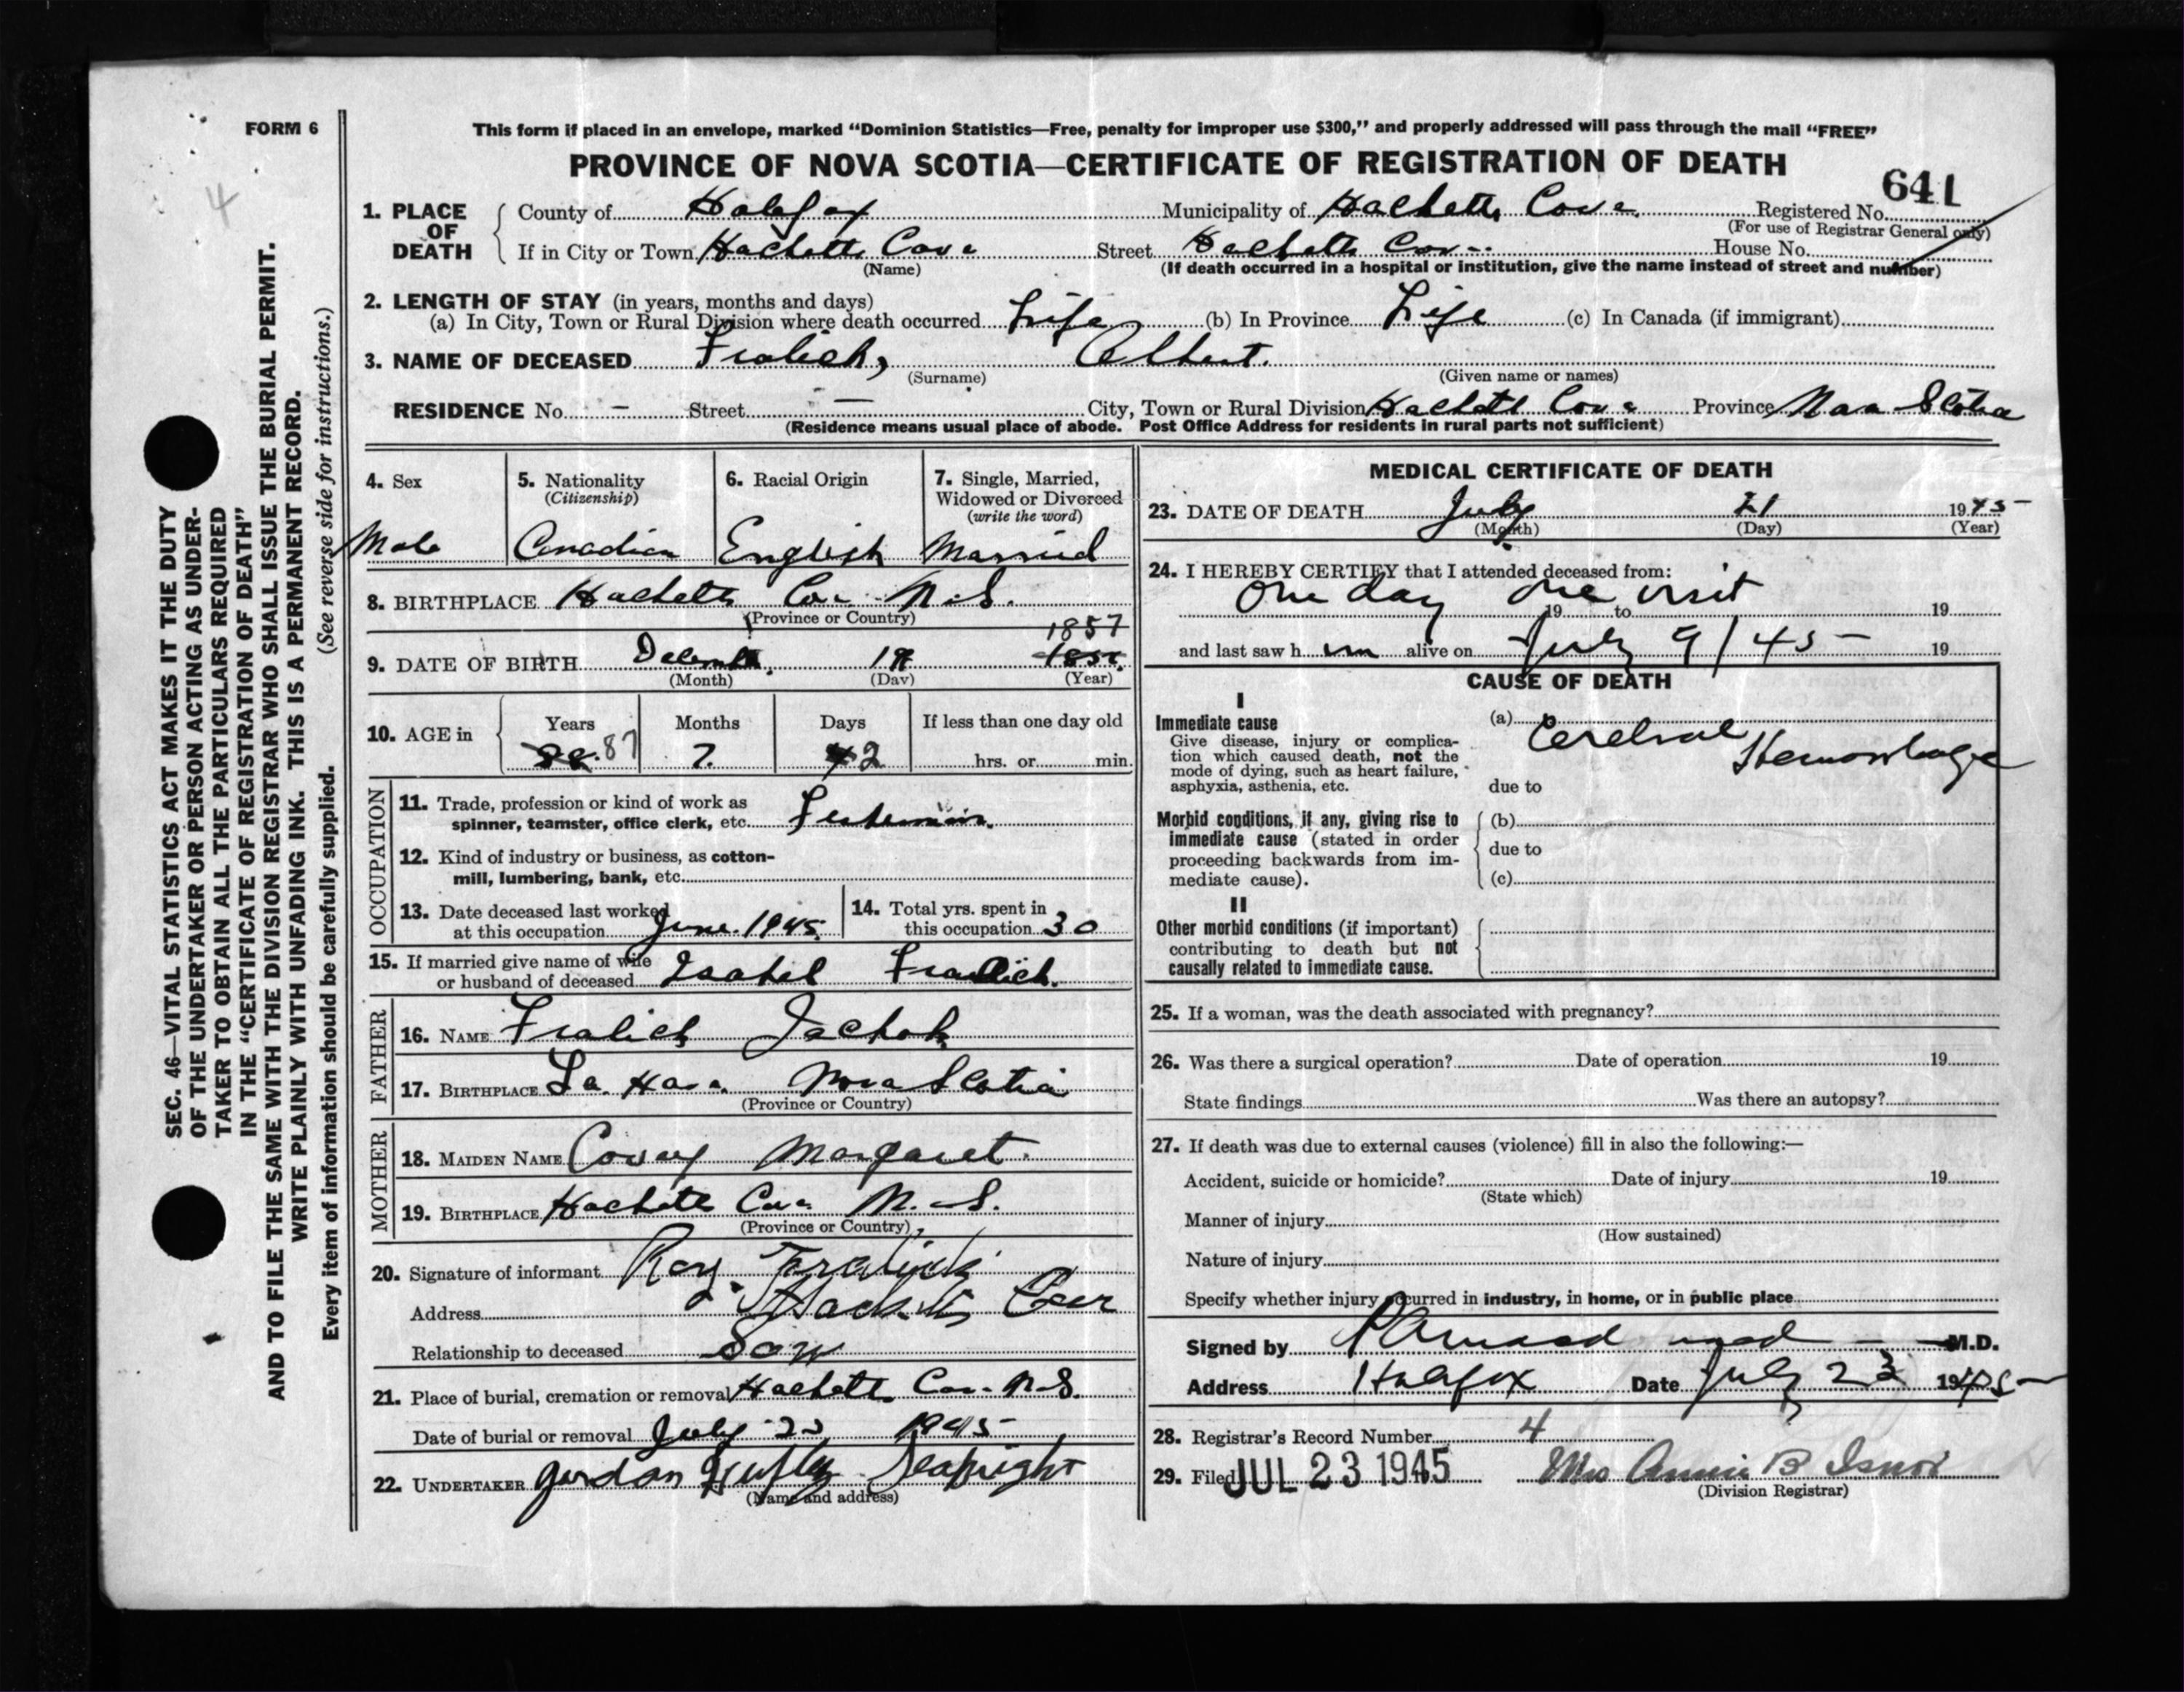 FORM 6
This form if placed in an envelope, marked “Dominion Statistics—Free, penalty for improper use $300,” and properly addressed will pass through the mail “FREE”
PROVINCE OF NOVA SCOTIA—CERTIFICATE OF REGISTRATION OF DEATH
641
4
1. PLACE OF DEATH County of Halifax Municipality of Hachetts Cove Registered No.
(For use of Registrar General only)
If in City or Town Hachetts Cove Street Hachetts Cove House No.
(Name) (If death occurred in a hospital or institution, give the name instead of street and number)
2. LENGTH OF STAY (in years, months and days)
(a) In City, Town or Rural Division where death occurred Life (b) In Province Life (c) In Canada (if immigrant)
3. NAME OF DECEASED Fralick, Albert.
(Surname) (Given name or names)
RESIDENCE No. – Street — City, Town or Rural Division Hachetts Cove Province Nova Scotia
(Residence means usual place of abode. Post Office Address for residents in rural parts not sufficient)
4. Sex 5. Nationality (Citizenship) 6. Racial Origin 7. Single, Married, Widowed or Divorced (write the word)
Male Canadian English Married
8. BIRTHPLACE Hachetts Cove N.S.
(Province or Country)
1857
9. DATE OF BIRTH December 19
(Month) (Day) (Year)
10. AGE in Years Months Days If less than one day old
87 7. 2 hrs. or min.
OCCUPATION
11. Trade, profession or kind of work as
spinner, teamster, office clerk, etc. Fisherman.
12. Kind of industry or business, as cotton-
mill, lumbering, bank, etc.
13. Date deceased last worked
at this occupation June. 1945.
14. Total yrs. spent in
this occupation 30
15. If married give name of wife
or husband of deceased Isabel Fralick.
FATHER
16. NAME Fralick
17. BIRTHPLACE La Have Nova Scotia
(Province or Country)
MOTHER
18. MAIDEN NAME Covey Margaret.
19. BIRTHPLACE Hachetts Cove N.S.
(Province or Country)
20. Signature of informant Roy Fralick
Address Hacketts Cove
Relationship to deceased Son
21. Place of burial, cremation or removal Hachetts Cove N.S.
Date of burial or removal July 23 1945
22. UNDERTAKER Gordon Seabright
(Name and address)
MEDICAL CERTIFICATE OF DEATH
23. DATE OF DEATH July 21 1945
(Month) (Day) (Year)
24. I HEREBY CERTIFY that I attended deceased from:
One day one visit 19 to 19
and last saw him alive on July 9/45 19
CAUSE OF DEATH
I
Immediate cause
Give disease, injury or complica-
tion which caused death, not the
mode of dying, such as heart failure,
asphyxia, asthenia, etc.
(a) Cerebral Hemorrhage
due to
Morbid conditions, if any, giving rise to
immediate cause (stated in order
proceeding backwards from im-
mediate cause).
(b)
due to
(c)
II
Other morbid conditions (if important)
contributing to death but not
causally related to immediate cause.
25. If a woman, was the death associated with pregnancy?
26. Was there a surgical operation? Date of operation 19
State findings Was there an autopsy?
27. If death was due to external causes (violence) fill in also the following:—
Accident, suicide or homicide? Date of injury 19
(State which)
Manner of injury
(How sustained)
Nature of injury
Specify whether injury occurred in industry, in home, or in public place
Signed by M.D.
Address Halifax Date July 23 1945
28. Registrar's Record Number 4
29. Filed JUL 23 1945 Mrs Annie B Isnor
(Division Registrar)
SEC. 46—VITAL STATISTICS ACT MAKES IT THE DUTY
OF THE UNDERTAKER OR PERSON ACTING AS UNDER-
TAKER TO OBTAIN ALL THE PARTICULARS REQUIRED
IN THE “CERTIFICATE OF REGISTRATION OF DEATH”
AND TO FILE THE SAME WITH THE DIVISION REGISTRAR WHO SHALL ISSUE THE BURIAL PERMIT.
WRITE PLAINLY WITH UNFADING INK. THIS IS A PERMANENT RECORD.
Every item of information should be carefully supplied. (See reverse side for instructions.)